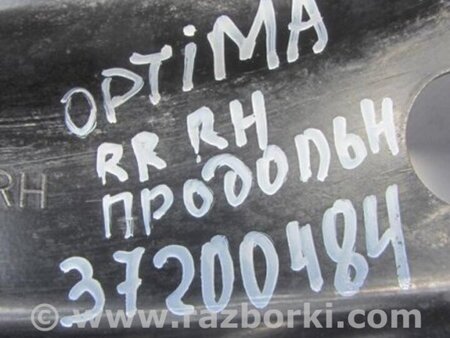 OPTiMA
RR RH
RH
ПРОДОЛЬН
37200484
© - www.razborki.com